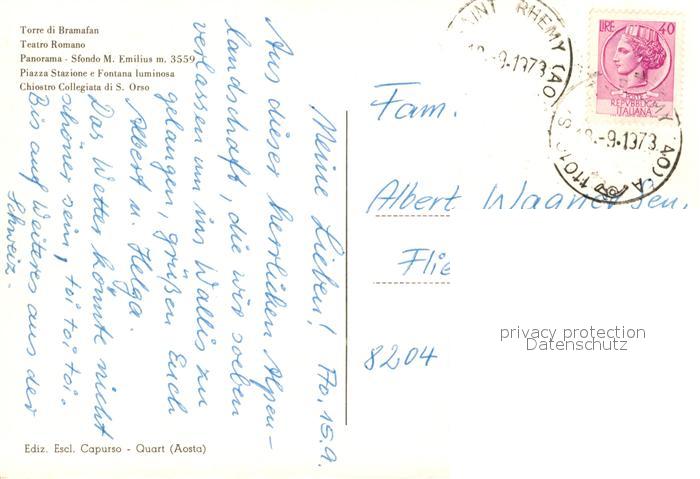 Torre di Bramafan
Teatro Romano
Panorama - Sfondo M. Emilius m. 3559
Piazza Stazione e Fontana luminosa
Chiostro Collegiata di S. Orso
Meine Lieben! Ao. 15.9.
Aus dieser herrlichen Alpen-
landschaft, die wir soeben
verlassen um ins Wallis zu
gelangen, grüßen Euch
Albert u. Helga.
Das Wetter könnte nicht
schöner sein, toi toi toi.
Bis auf Weiteres aus der
Schweiz.
Ediz. Escl. Capurso - Quart (Aosta)
SAINT RHEMY (AO)
-9.1973
LIRE 40
REPVBBLICA
ITALIANA
-9.1973
Fam.
Albert Sen.
Flie
8204
privacy protection
Datenschutz